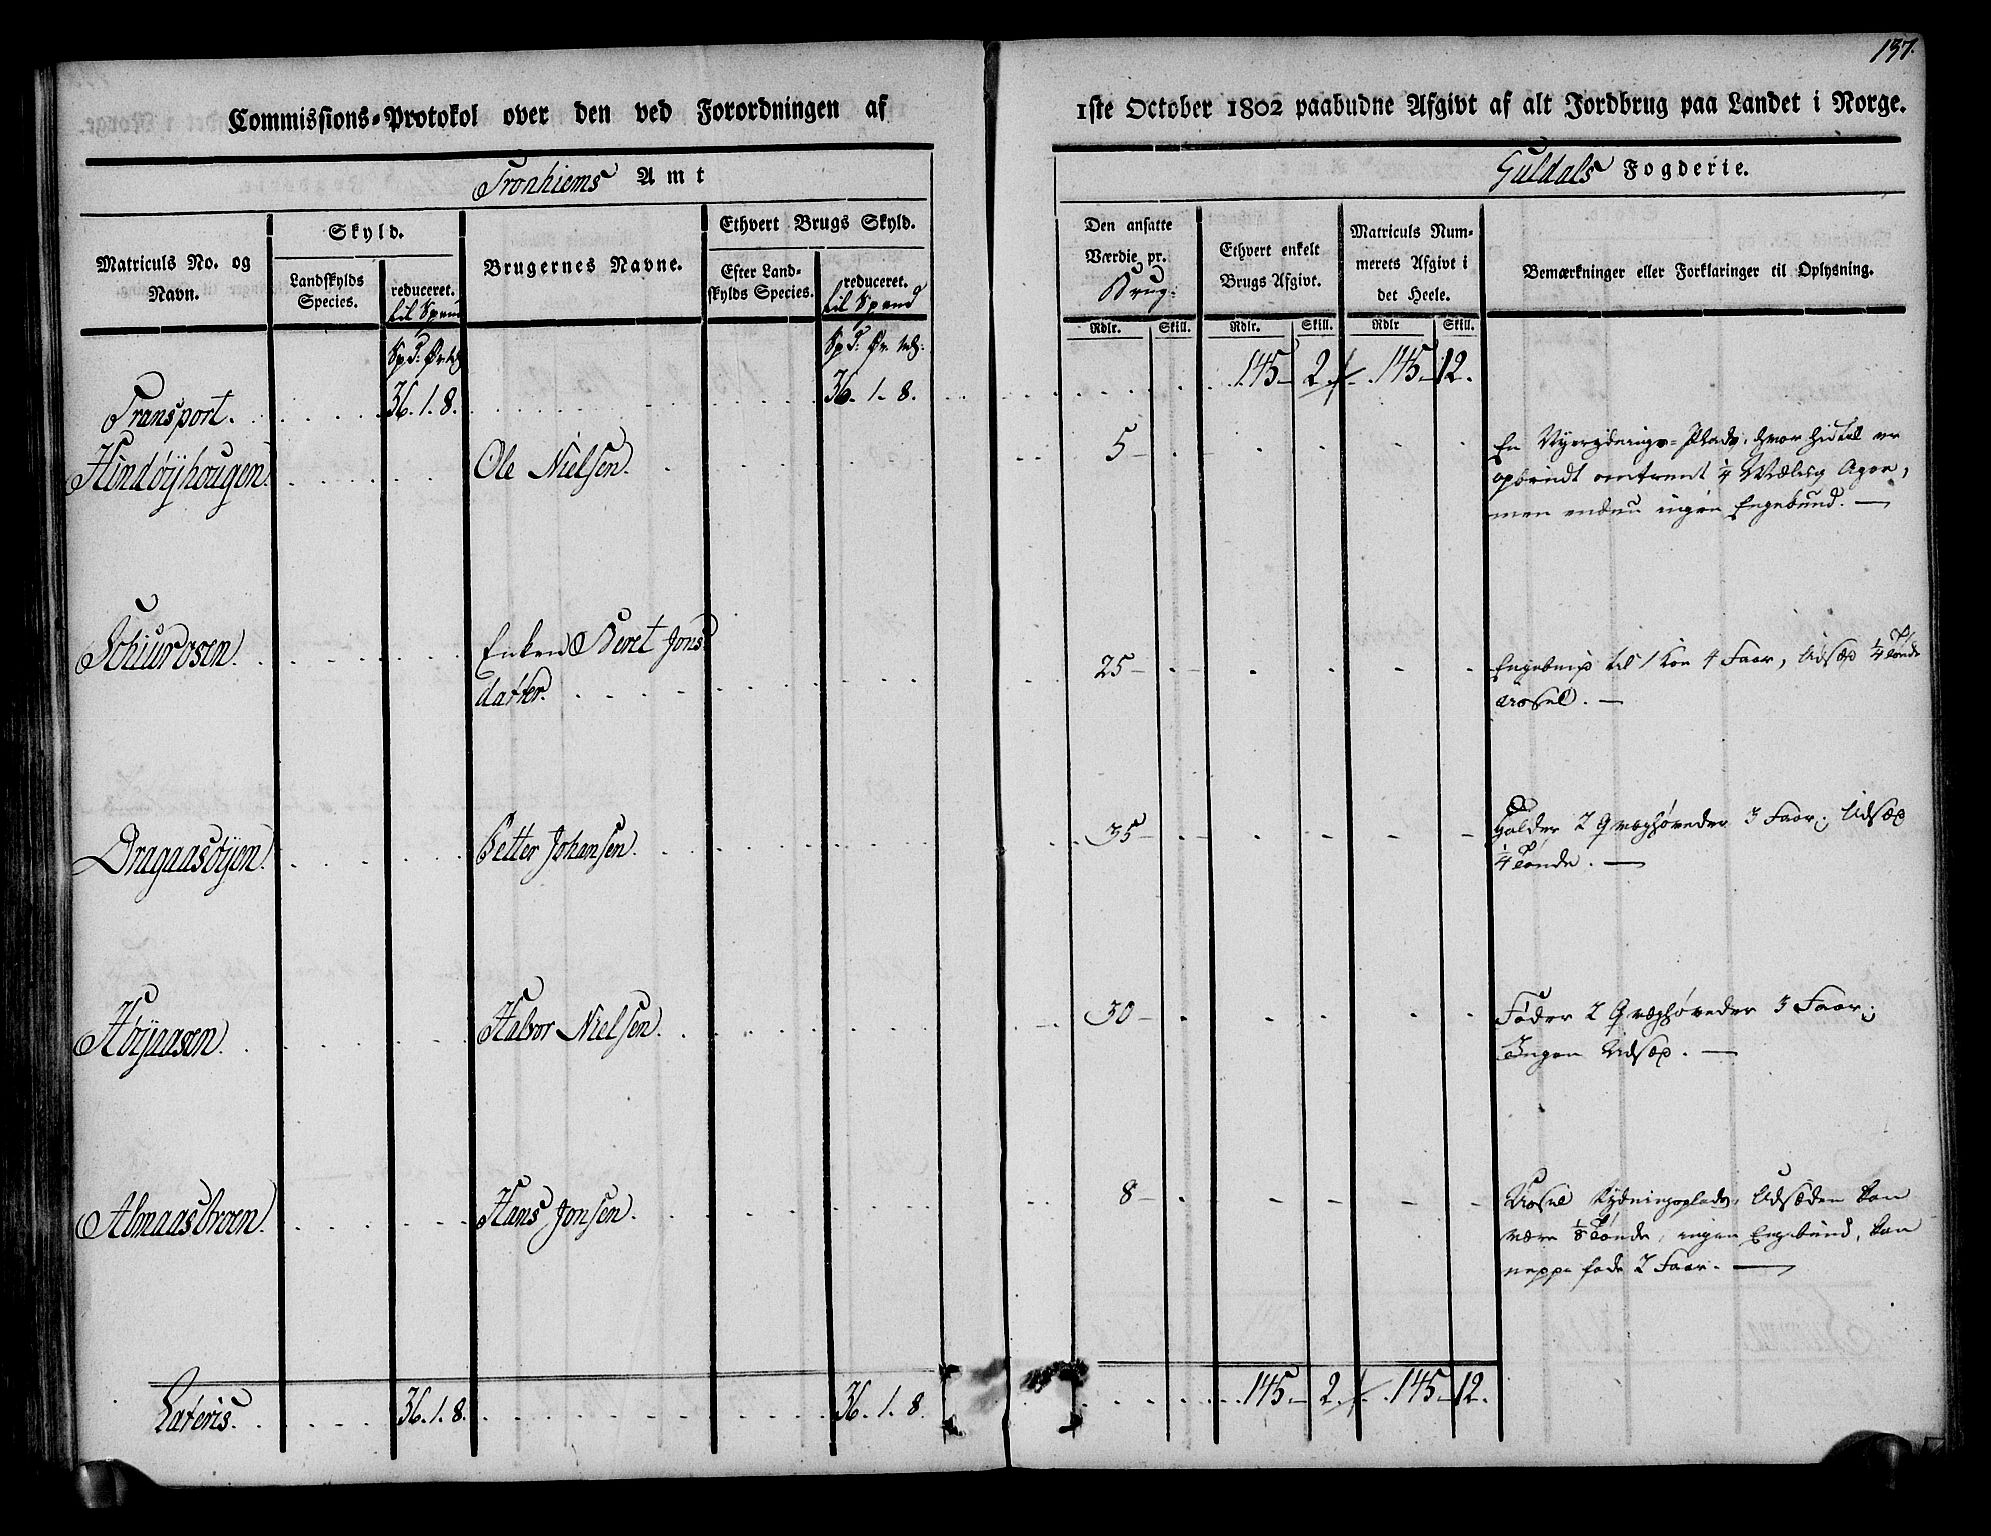 137.
Commissions-Protokol over den ved Forordningen af 1ste October 1802 paabudne Afgivt af alt Jordbrug paa Landet i Norge.
Tronhiems Amt
Guldals Fogderie.
Matriculs No. og Navn.
Skyld.
Landskylds Species.
reduceret. til Spand
Brugernes Navne.
Ethvert Brugs Skyld.
Efter Landskylds Species.
reduceret. til Spand
Den ansatte Værdie pr. Brug.
Ethvert enkelt Brugs Afgivt.
Matriculs Nummerets Afgivt i det Heele.
Bemærkninger eller Forklaringer til Oplysning.
Rdlr. Skill. Rdlr. Skill. Rdlr Skill.
Spd: Ør
Spd: Ør
Transport. 36. 1. 8. 36. 1. 8. 145 2 145 12.
Hindøyhougen. Ole Nielsen. 5
En Nyerydnings-Plads, hvor hidtil er
opbrudt omtrent 1/4 Mæling Ager,
men endnu ingen Engebund.
Schiurvosen. Enken Beret Jons
datter. 25
Engebund til 1 Koe 4 Faar, Udsæd 1/4 Tønde
Aarsæl.
Dragaasøyen. Petter Johansen. 35
Holder 2 Qvæghøveder 3 Faar; Udsæd
1/4 Tønde.
Høyaasen. Halvor Nielsen. 30
Føder 2 Qvæghøveder 3 Faar;
Ingen Udsæd.
Almaasbroen. Hans Jonsen. 8
Rydningsplads, Udsæden kan
være 1/8 Tønde, ingen Engebund, kan
neppe føde 2 Faar.
Lateris. 36. 1. 8. 36. 1. 8 145 2 145 12.